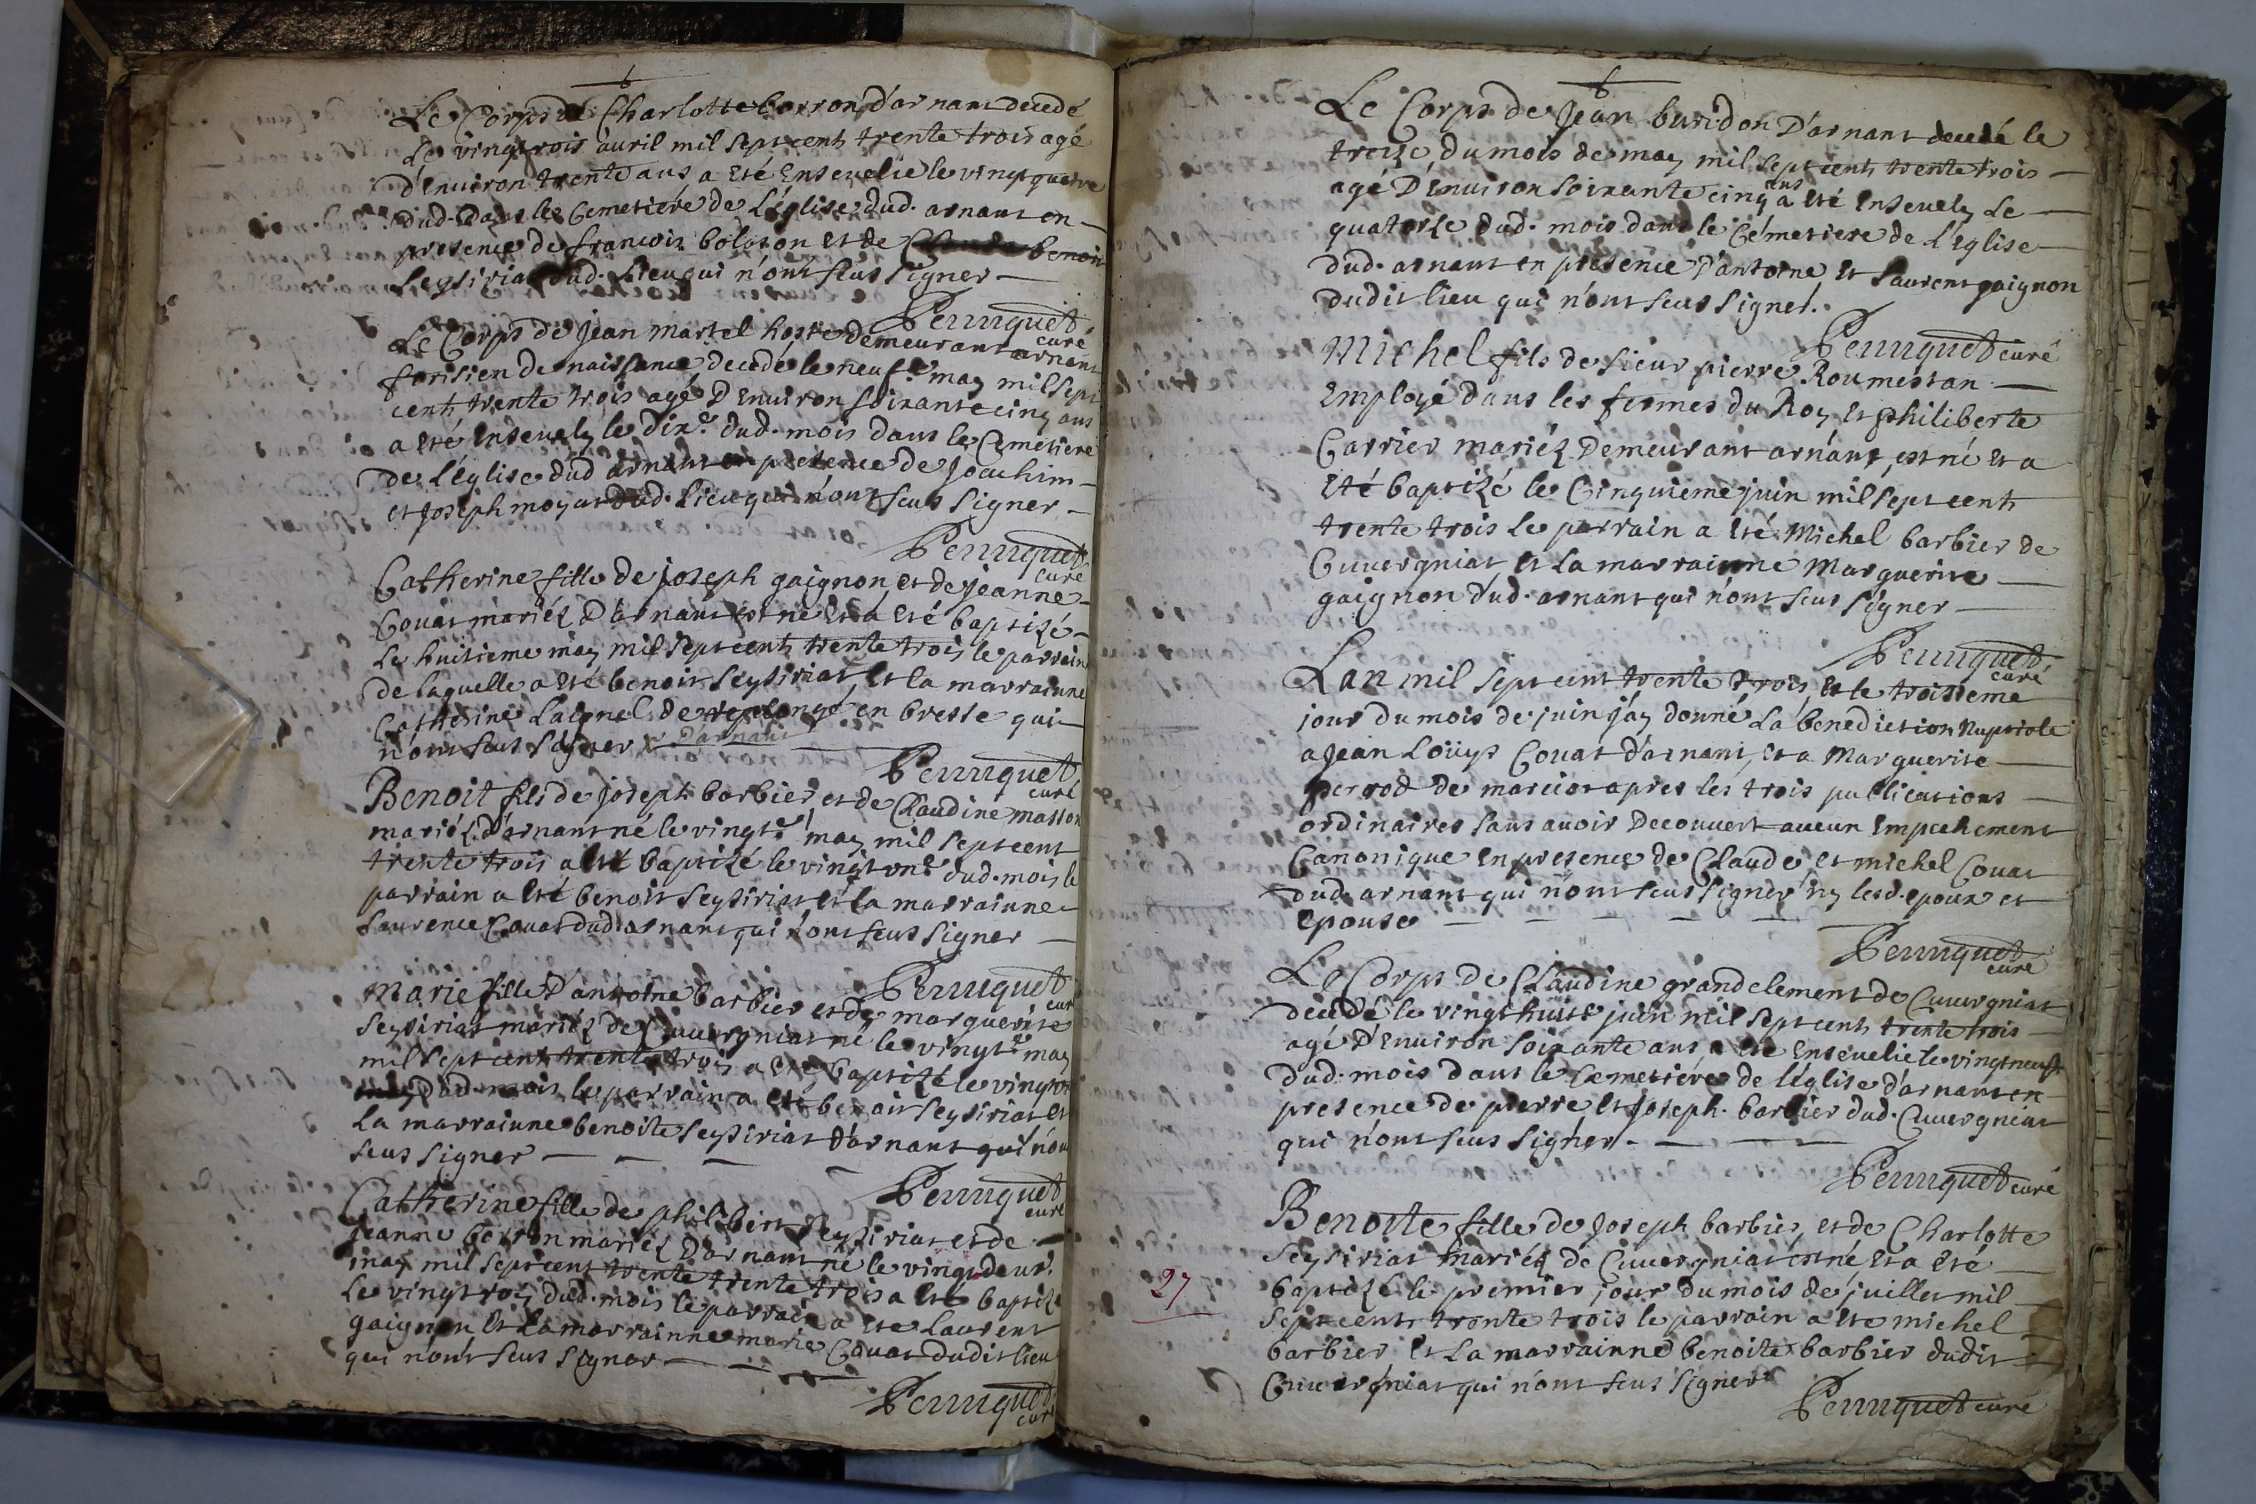 Le Corps de Charlotte borron d'arnant decedé
Le vingtrois auril mil sept cent trente trois agé
d'Enuiron trente ans a eté Enseuelie le vingt quatre
dud. dans le Cemetiere de L'église dud. arnant en
presence de francois bolozon et de benoit
Seyssiriat dud. Lieu qui n'ont sçus signer
Perruquet
curé
Le Corps de Jean martel hoste demeurant arnant
parisien de naissance decedé le neufe may mil sept
cent trente trois agé D'Enuiron soixante cinq ans
a eté Enseuely le dixe. dud. mois dans le Cemetiere
de L'église dud arnant en presence de Joachim
et Joseph moyat dud. Lieu qui n'ont sçus signer
Perruquet
curé
Catherine fille de joseph gaignon et de jeanne
Couat mariéz d'arnant est né et a eté baptizé
Le huitieme may mil sept cent trente trois le parrain
de laquelle a eté benoit Seyssiriat et la marrainne
Catherine en bresse qui
n'ont sçus signer d'arnant
Perruquet
curé
Benoit fils de Joseph barbier et de Claudine masson
mariéz d'arnant né le vingte. may mil sept cent
trente trois a eté baptizé le vingt une dud. mois le
parrain a eté benoit Seyssiriat et la marrainne
Laurence Couat dud arnant qui n'ont sçus signer
Perruquet
curé
Marie fille D'antoine barbier et de marguerite
Seyssiriat mariéz de Cuuergniat né le vingte. may
mil sept cent trente trois a eté baptizé le vingt un
dud. mois le parrain a eté benoit Seyssiriat et
La marrainne benoite Seyssiriat d'arnant qui n'ont
sçus signer
Perruquet
curé
Catherine fille de philibert Seyssiriat et de
jeanne borron mariéz D'arnant né le vingt deux.
may mil sept cent trente trente trois a eté baptizé
Le vingtrois dud. mois le parrain a eté Laurent
gaignon et La marrainne marie Couat dudit lieu
qui n'ont sçus signer
Perruquet
curé
Le Corps de Jean buridon D'arnant decedé le
treize du mois de may mil sept cent trente trois
agé D'Enuiron soixante cinq ans a eté Enseuely Le
quatorze dud. mois dans le Cémetiere de L'église
dud. arnant en presence d'antoine et Laurent gaignon
dudit lieu qui n'ont sçus signer.
Perruquet curé
Michel fils de sieur pierre Roumestan
Employé dans les fermes du Roy et philiberte
Carrier mariéz Demeurant arnant, est né et a
Eté baptizé le Cinquieme juin mil sept cent
trente trois Le parrain a eté Michel barbier de
Cuuergniat et La marrainne Marguerite
gaignon dud. arnant qui n'ont sçus signer
Perruquet
curé
Lan mil sept cent trente trois, et le troisieme
jour du mois de juin j'ay donné La benediction Nuptiale
a Jean Loüys Couat d'arnant, et a Marguerite
perrod de marciat apres les trois publications
ordinaires sans auoir Decouuert aucun Empechement
Canonique en presence de Claude et michel Couat
dud. arnant qui n'ont sçus signer ny lesd. epoux et
epouse
Perruquet
curé
Le Corps de Claudine grandclement de Cuuergniat
decedé le vingt huite juin mil sept cent trente trois
agé D'Enuiron soixante ans a eté Enseuelie le vingt neufe
dud. mois dans le Cemetiere de l'église d'arnant en
presence de pierre et Joseph. barbier dud. Cuuergniat
qui n'ont sçus signer
Perruquet curé
Benoite fille de Joseph barbier, et de Charlotte
Seyssiriat mariéz de Cuuergniat est né et a eté
27
baptizé le premier jour du mois de juillet mil
sept cent trente trois le parrain a eté michel
barbier et La marrainne benoite barbier dudit
Cuuergniat qui n'ont sçus signer
Perruquet curé